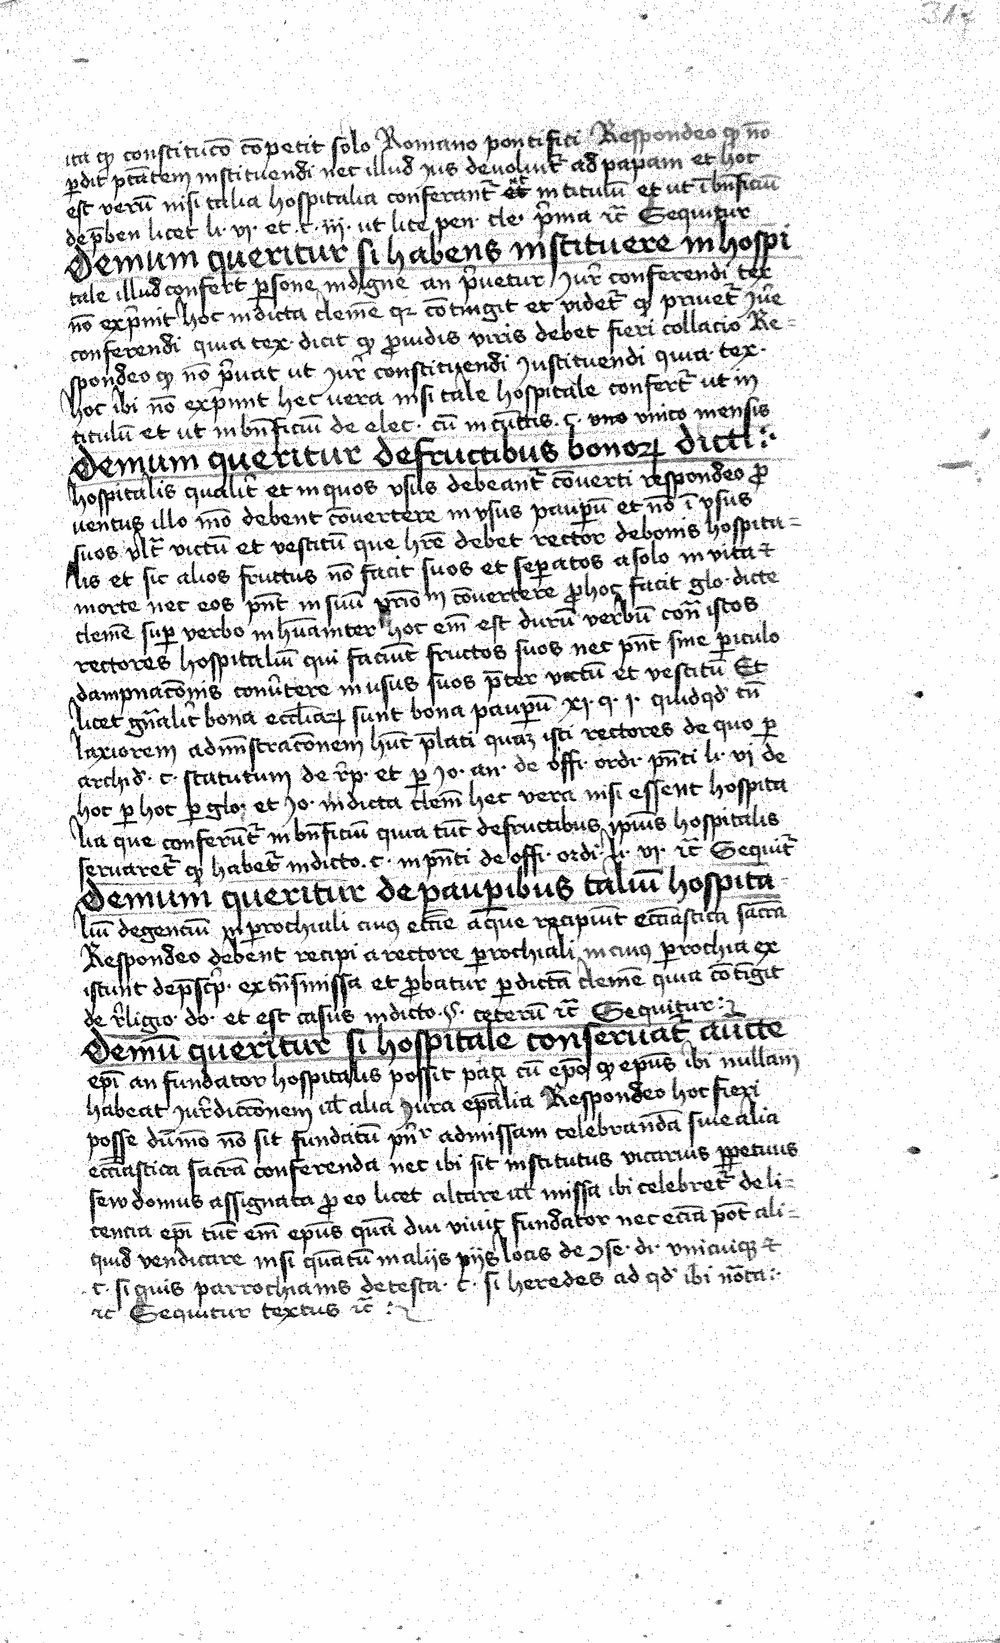 317
ita qp constitucõ cõpetit solo Romano pontifici Respondeo qp nõ
perdit ptãtem instituendi nec illud ius devoluit̃ ad papam et hoc
est verũ nisi talia hospitalia conferant̃ et in titulũ et ut ĩ bñficiũ
de p̃ben licet li. vi. et .c. iii. ut lite pen. cle. p̃ma rc̃ Sequitur
Demum queritur si habens instituere in hospi
tale illud confert persone indigne an p̃vetur iur̃ conferendi tex
nõ exp̃mit hoc in dicta clemẽ qz cõtingit et videt̃ qp privet̃ iur̃e
conferendi quia tex. dicit qp providis viris debet fieri collacio Re=
spondeo qp nõ p̃vat ut iur̃ constituendi Instituendi quia tex.
hoc ibi nõ exprimit hec vera nisi tale hospitale confert̃ ut in
titulũ et ut in bñficiũ de elec. cũ in cũttis. ꝯ. uno unico mensis
Demum queritur de fructibus bonoꝝ dicti :.
hospitalis qualit̃ et in quos usus debeant̃ cõverti respondeo pro
ventus illo mõ debent cõvertere in usus pauperũ et nõ ĩ usus
suos vlt̃ victũ et vestitũ que hr̃e debet rector de bonis hospita=
lis et sic alios fructus nõ facit suos et seperatos a solo in vita et
morte nec eos pñt in suũ convertere pro hoc facit glo. dicte
clemẽ super verbo inhũaniter hoc em̃ est durũ verbũ con̄ istos
rectores hospitaliũ qui faciũt fructos suos nec pñt sine periculo
dampnacõnis conṽtere in usus suos p̃ter victũ et vestitũ Et
licet gñalit̃ bona eccliaꝝ sunt bona pauperũ xi. q. i. quidqd tñ
laxiorem adm̃stracõnem hñt p̃lati quaz isti rectores de quo per
archid. c. statutum de r̃p. et per Jo. an. de offi. ordi. pñti li. vi de
hoc per hoc per glo. et Jo. in dicta clem̃ hec vera nisi essent hospita
lia que conferũt̃ in bñficiũ quia tũc de fructibus ipius hospitalis
servaret̃ qp habet̃ in dicto. c. in pñti de offi. ordi. li. vi. rc̃ Sequit̃
Demum queritur de pauperibus taliũ hospita
liũ degenciũ in perochiali cuiꝰ eccie a que recipiũt ecclastica sacr̃a
Respondeo debent recipi a rectore perochiali in cuiꝰ perochia ex
istunt de p̃scrip̃. ex tñsmissa et probatur per dictã clemẽ quia cõtĩgit
de r̃ligio. do. et est casus in dicto. §. ceterũ rc̃ Sequitur :.
Demũ queritur si hospitale conservat̃ aũcte
epĩ an fundator hospitalis possit paci cũ epõ qp epũs ibi nullam
habeat iur̃dicconem ul̃ alia iura epãlia Respondeo hoc fieri
posse dũmõ nõ sit fundatũ pñr admissam celebrandã sive alia
ecclastica sacr̃a conferenda nec ibi sit institutus vicarius perpetuus
sew domus assignata pro eo licet altare ul̃ missa ibi celebret̃ de li=
cencia epĩ tũc em̃ epũs quã diu vivit fundator nec ecia põt ali=
quid vendicare nisi quãtũ in aliis piis locis de ꝯse. di. unicuiqꝫ et
c. si quis parrochianis de testa. c. si heredes ad qd ibi nõta :.
rc Sequitur textus rc̃ :.